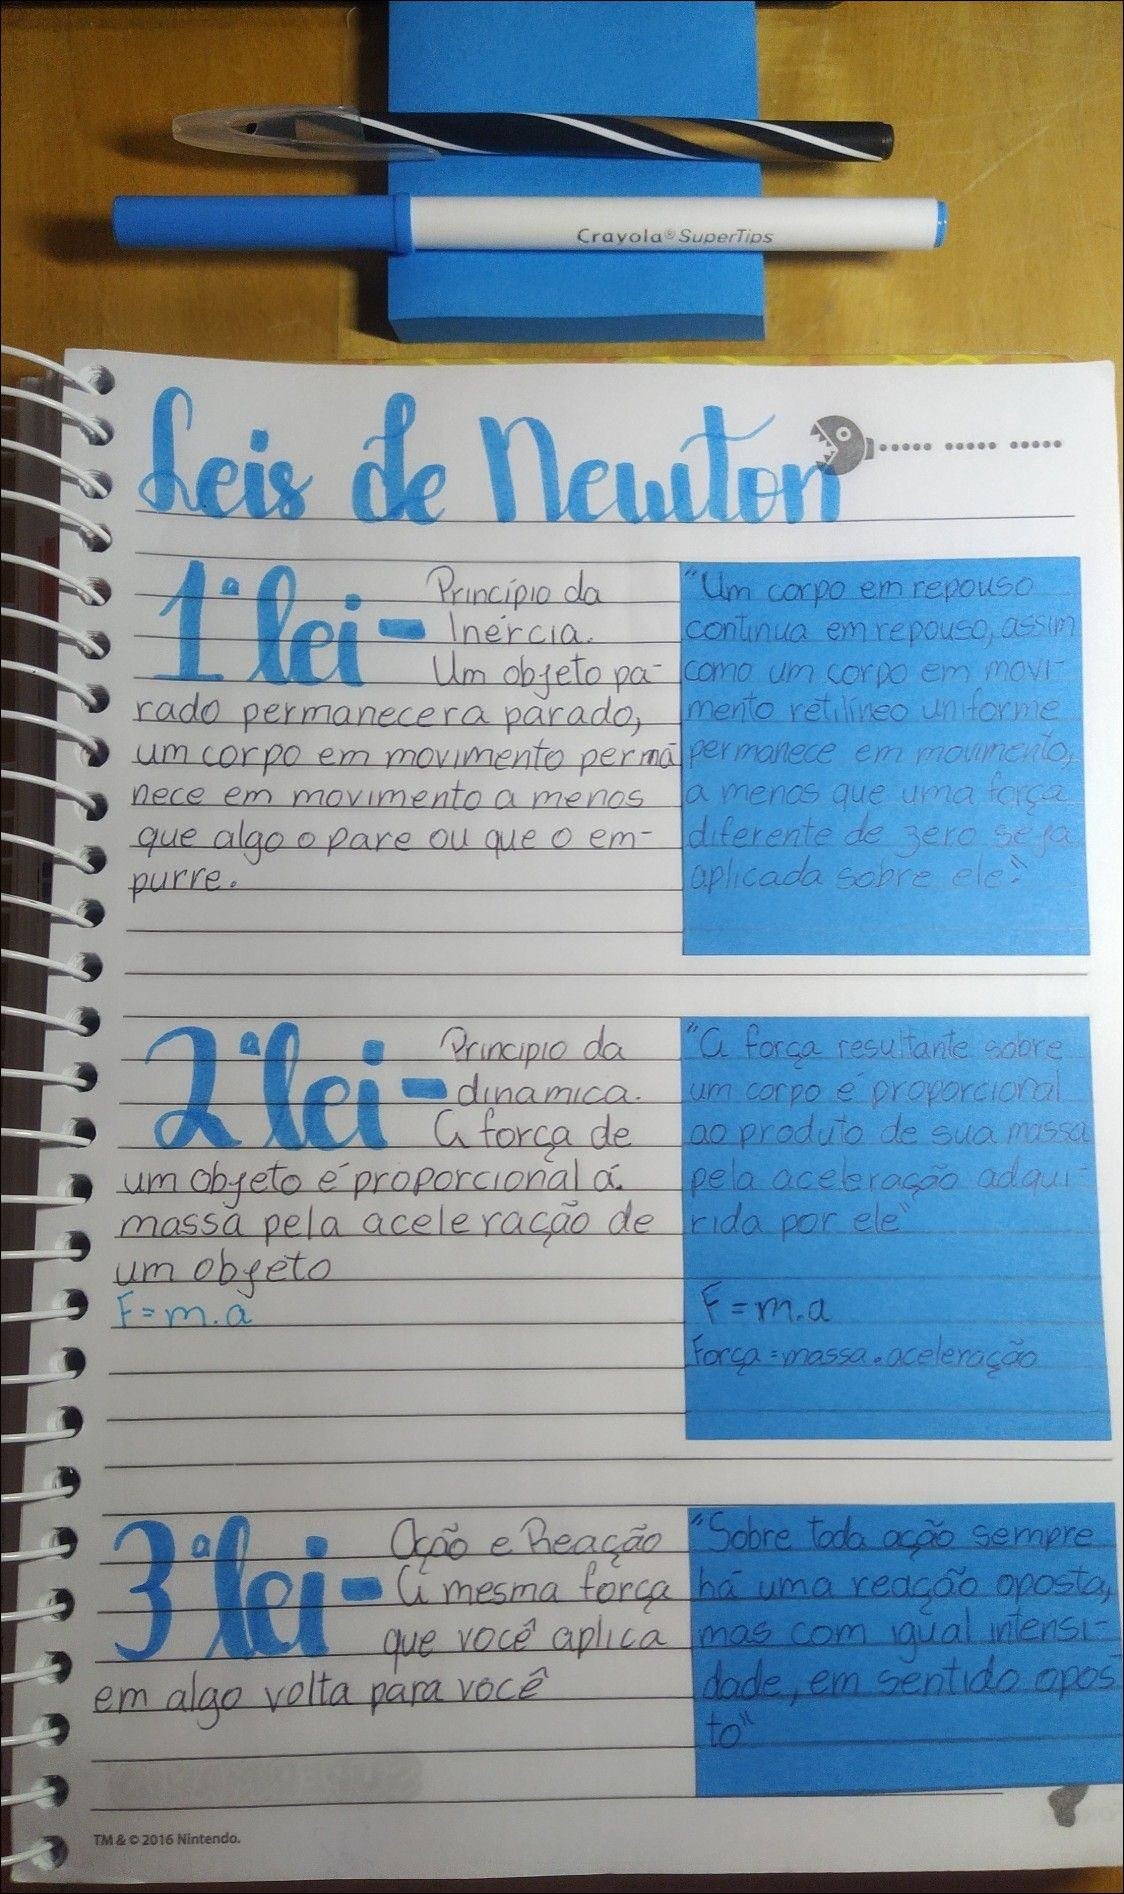 Crayola® SuperTips
Leis de Newton
1ª lei - Princípio da
Inércia.
Um objeto pa-
rado permanecera parado,
um corpo em movimento perma
nece em movimento a menos
que algo o pare ou que o em-
purre.
"Um corpo em repouso
continua em repouso, assim
como um corpo em movi-
mento retilíneo uniforme
permanece em movimento,
a menos que uma força
diferente de zero seja
aplicada sobre ele."
2ª lei - Princípio da
dinamica.
A força de
um objeto é proporcional á
massa pela aceleração de
um objeto
F = m.a
"A força resultante sobre
um corpo é proporcional
ao produto de sua massa
pela aceleração adqui-
rida por ele"
F = m.a
Força = massa . aceleração
3ª lei - Ação e Reação
A mesma força
que você aplica
em algo volta para você
"Sobre toda ação sempre
há uma reação oposta,
mas com igual intensi-
dade, em sentido opos
to"
TM & © 2016 Nintendo.